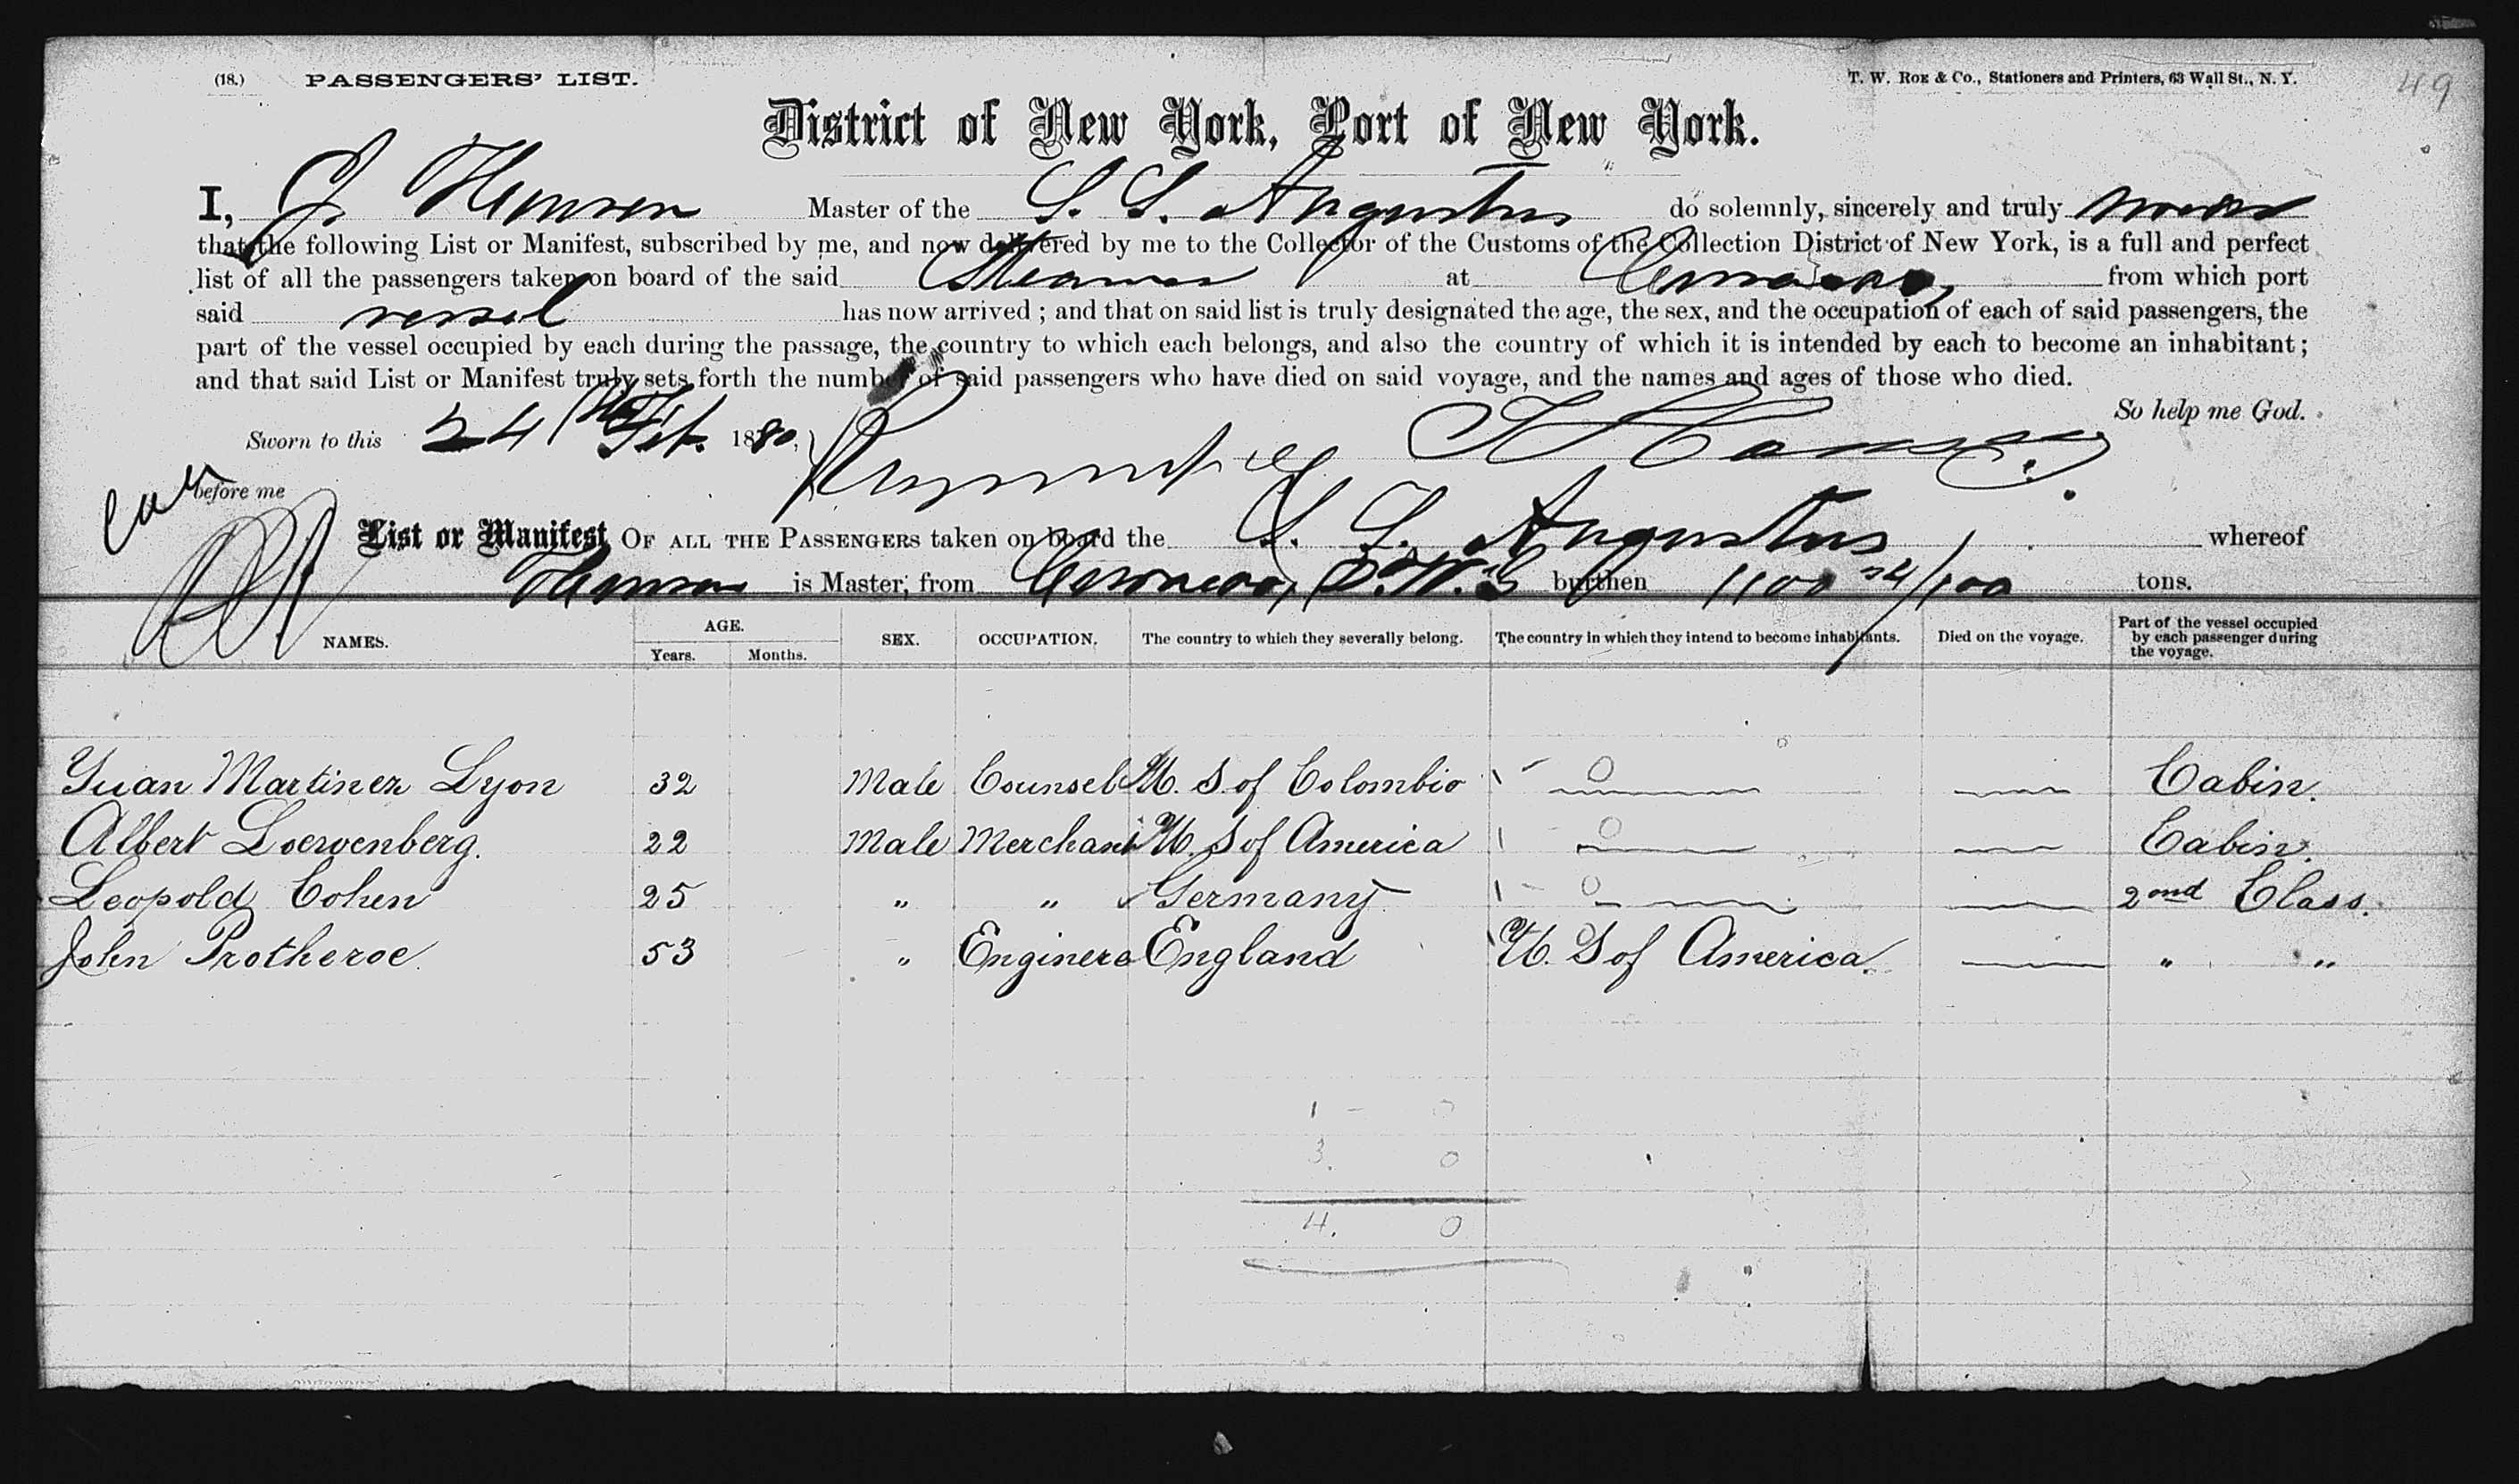 (18.) PASSENGERS' LIST. T. W. Roe & Co., Stationers and Printers, 63 Wall St., N. Y. 49
District of New York, Port of New York.
I, J. Hansen Master of the S. S. Augustus do solemnly, sincerely and truly swear
that the following List or Manifest, subscribed by me, and now delivered by me to the Collector of the Customs of the Collection District of New York, is a full and perfect
list of all the passengers taken on board of the said Steamer at Curacao, from which port
said vessel has now arrived; and that on said list is truly designated the age, the sex, and the occupation of each of said passengers, the
part of the vessel occupied by each during the passage, the country to which each belongs, and also the country of which it is intended by each to become an inhabitant;
and that said List or Manifest truly sets forth the number of said passengers who have died on said voyage, and the names and ages of those who died.
So help me God.
Sworn to this 24th Feb. 1880, Hansen
before me
List or Manifest OF ALL THE PASSENGERS taken on board the S. S. Augustus, whereof
Hansen is Master, from Curacao, D. W. I. burthen 1100 24/100 tons.
NAMES. AGE. SEX. OCCUPATION. The country to which they severally belong. The country in which they intend to become inhabitants. Died on the voyage. Part of the vessel occupied by each passenger during the voyage.
Years. Months.
Juan Martinez Lyon 32 Male Counsel U. S. of Colombio 0 Cabin.
Albert Loewenberg. 22 Male Merchant U. S of America 0 Cabin.
Leopold Cohen 25 " " Germany 0 2ond Class.
John Protheroe. 53 " Engineer England U. S of America. " "
1 - 0
3. 0
4. 0